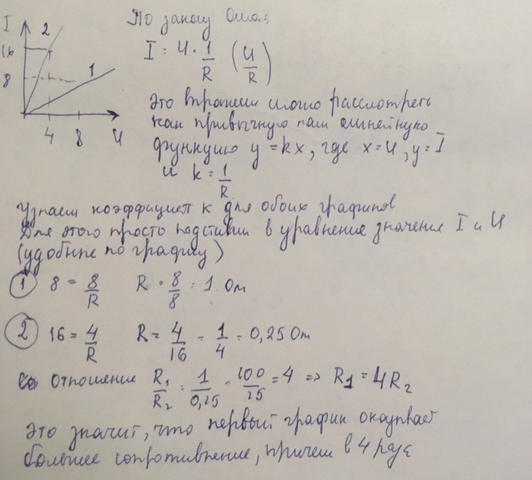 I
2
16
1
8
4 8 U
По закону Ома:
I = U · 1/R (U/R)
Это выражение можно рассмотреть
как привычную нам линейную
функцию y = kx, где x = U, y = I
и k = 1/R
Узнаем коэффициент k для обоих графиков
Для этого просто подставим в уравнение значение I и U
(удобные по графику)
1 8 = 8/R R = 8/8 = 1 Ом
2 16 = 4/R R = 4/16 = 1/4 = 0,25 Ом
Отношение R1/R2 = 1/0,25 = 100/25 = 4 => R1 = 4R2
Это значит, что первый график
большее сопротивление, причем в 4 раза